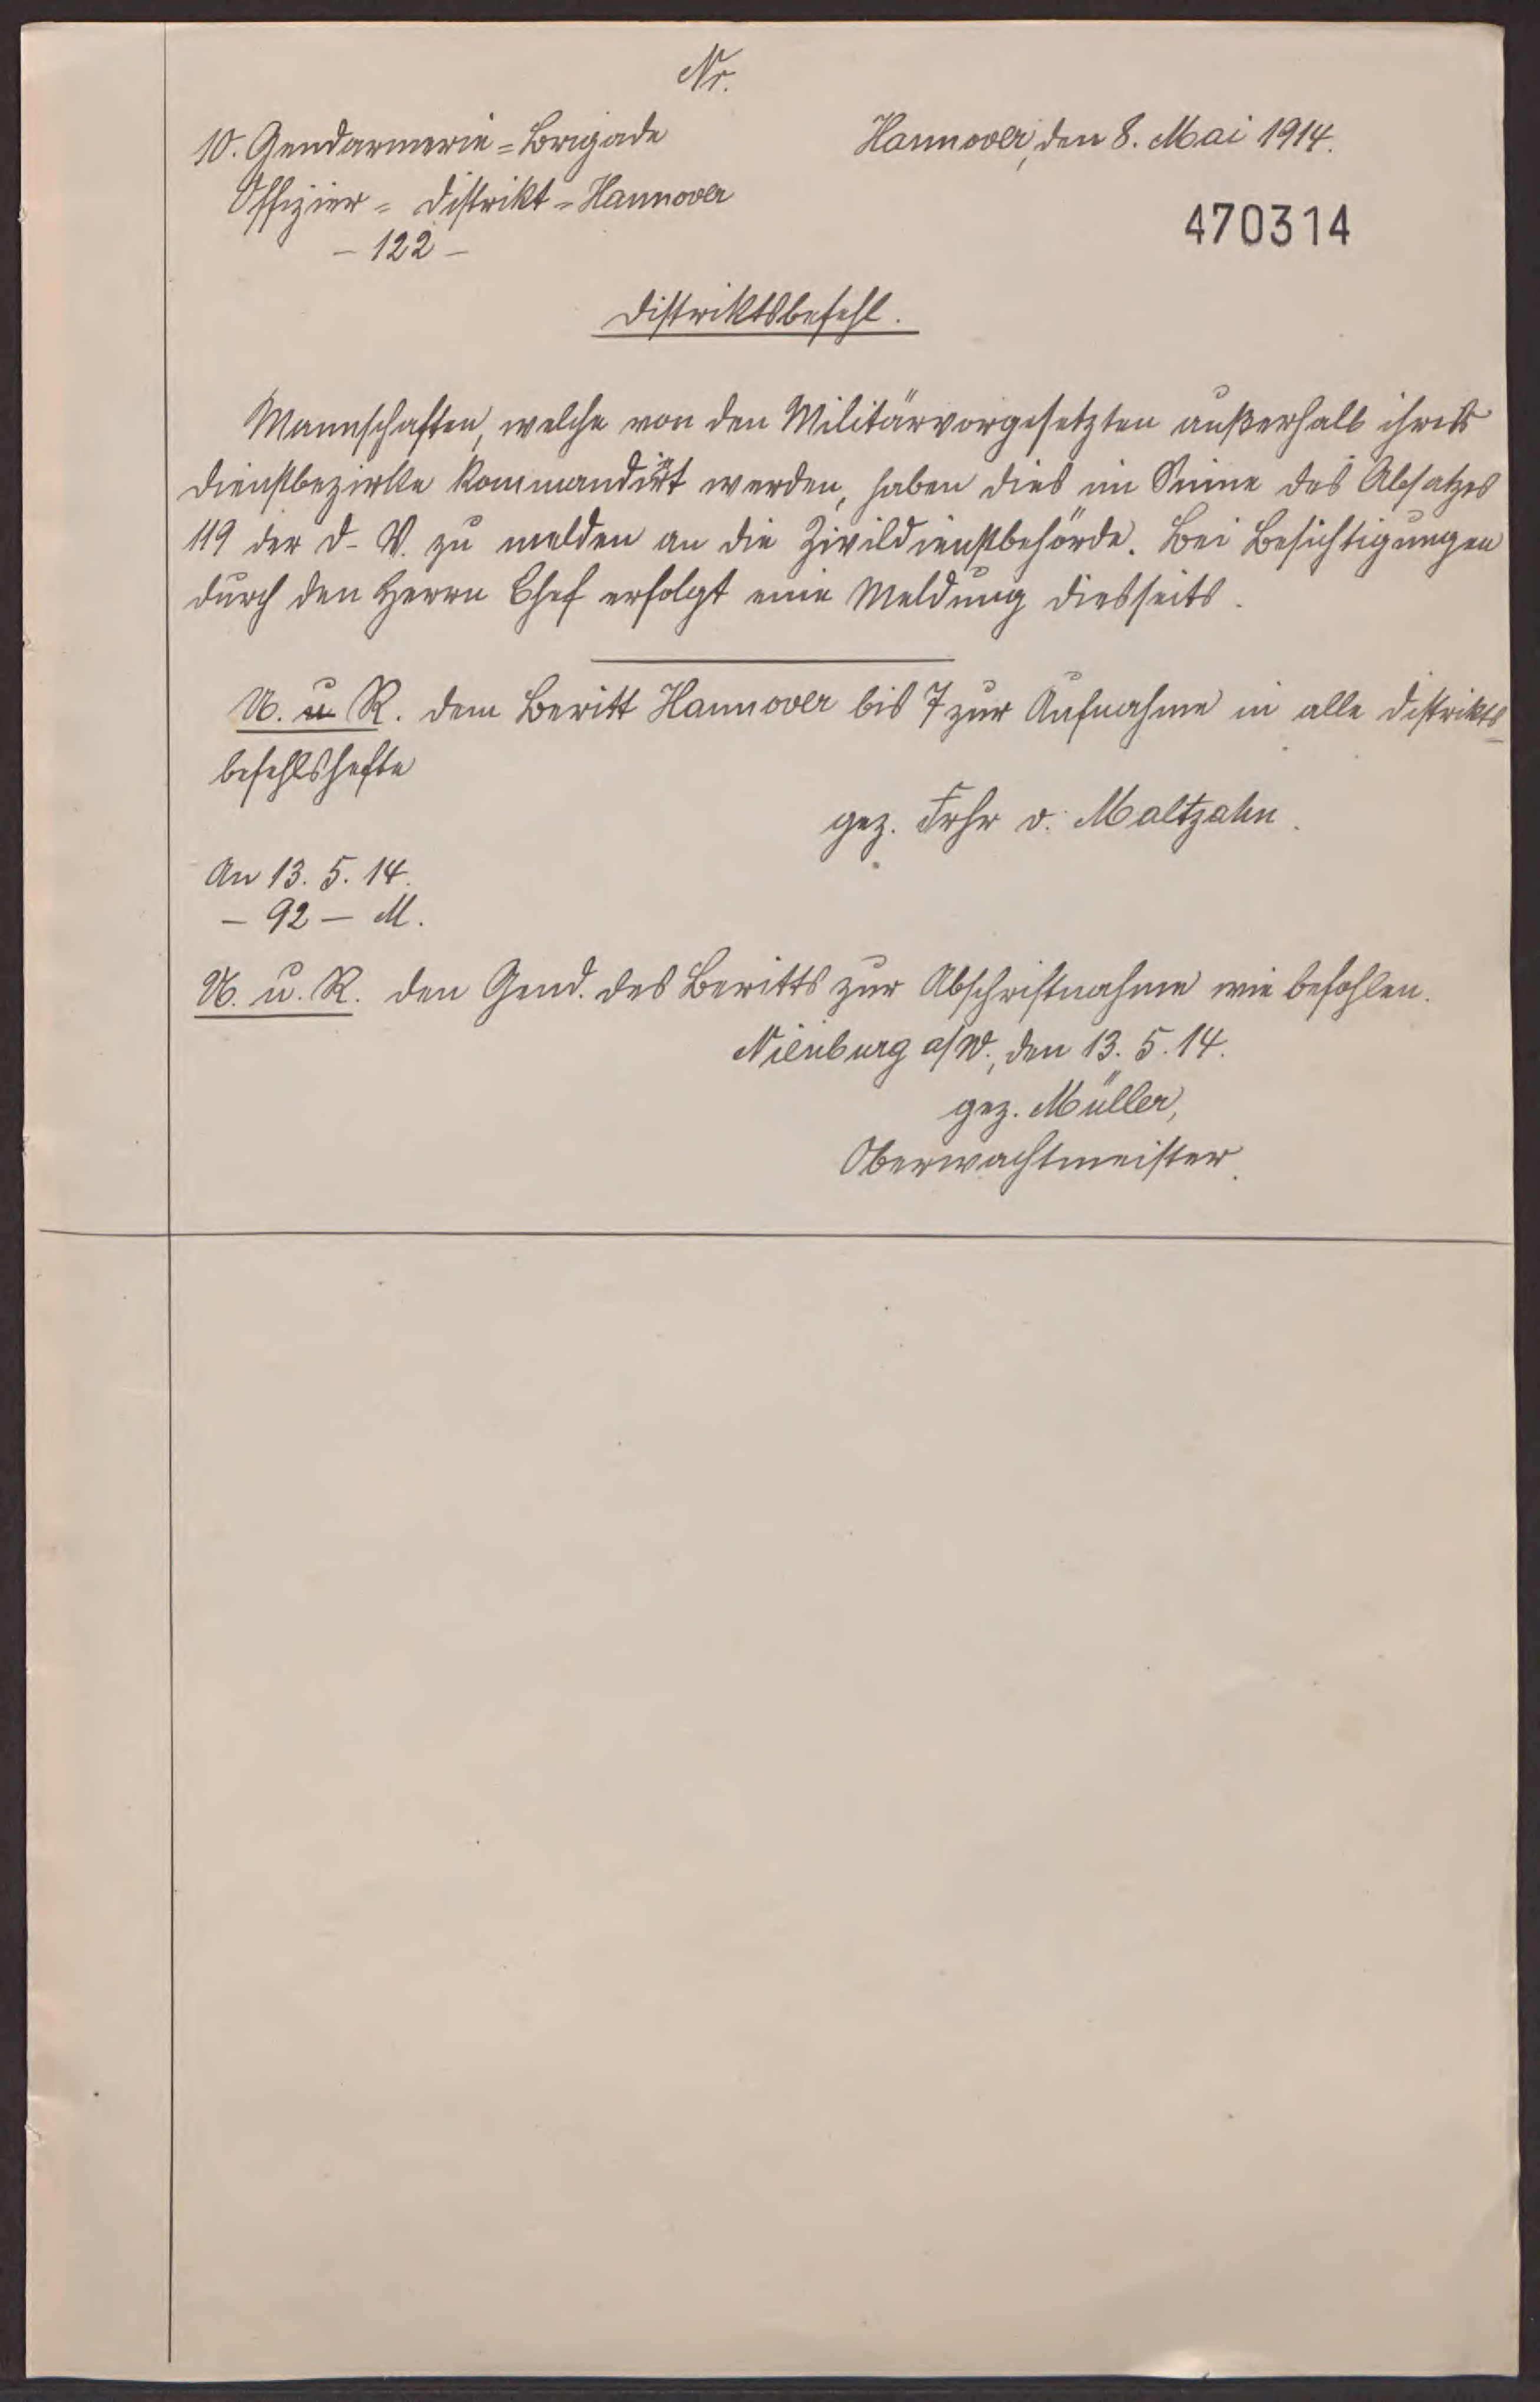 Nr.
10. Gendarmerie=Brigade
Offizier=Distrikt=Hannover
- 122 -
Hannover, den 8. Mai 1914.
470314
Distriktsbefehl.
Mannschaften, welche von den Militärvorgesetzten außerhalb ihres
Dienstbezirks kommandirt werden, haben dies im Sinne des Absatzes
119 der D. V. zu melden an die Zivildienstbehörde. Bei Besichtigungen
durch den Herrn Chef erfolgt eine Meldung diesseits.
U. u R. dem Beritt Hannover bis 7 zur Aufnahme in alle Distrikts=
befehlshefte
gez. Frhr v. Maltzahn.
An 13. 5. 14.
- 92 - M.
U. u. R. den Gend. des Beritts zur Abschriftnahme wie befohlen.
Nienburg a/W., den 13. 5. 14.
gez. Müller,
Oberwachtmeister.